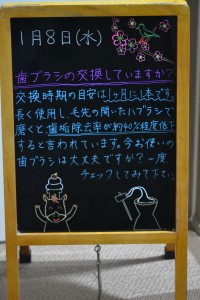 1月8日(水)
歯ブラシの交換していますか?
交換時期の目安は1ヶ月に1本です。
長く使用し、毛先の開いたハブラシで
磨くと、歯垢除去率が約40%程度低下
すると言われています。今お使いの
歯ブラシは大丈夫ですか?一度
チェックしてみて下さい。